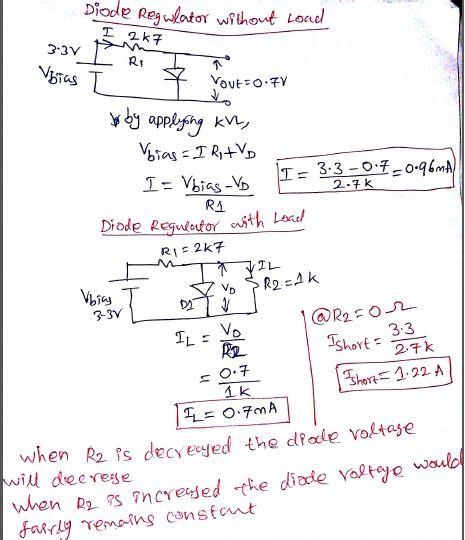 Diode Regulator without Load
I 2k7
3.3V
R1
Vbias
Vout=0.7V
by applying KVL,
Vbias = I R1 + VD
I = Vbias - VD
R1
I = 3.3 - 0.7 = 0.96mA
2.7k
Diode Regulator with Load
R1 = 2k7
IL
VD
R2 = 1k
D1
Vbias
3.3V
IL = VD
R2
= 0.7
1k
IL = 0.7mA
@R2 = 0 Ω
Ishort = 3.3
2.7k
Ishort = 1.22 A
when R2 is decreyed the diode voltage
will decrese
when R2 is increased the diode voltage would
fairly remains constant